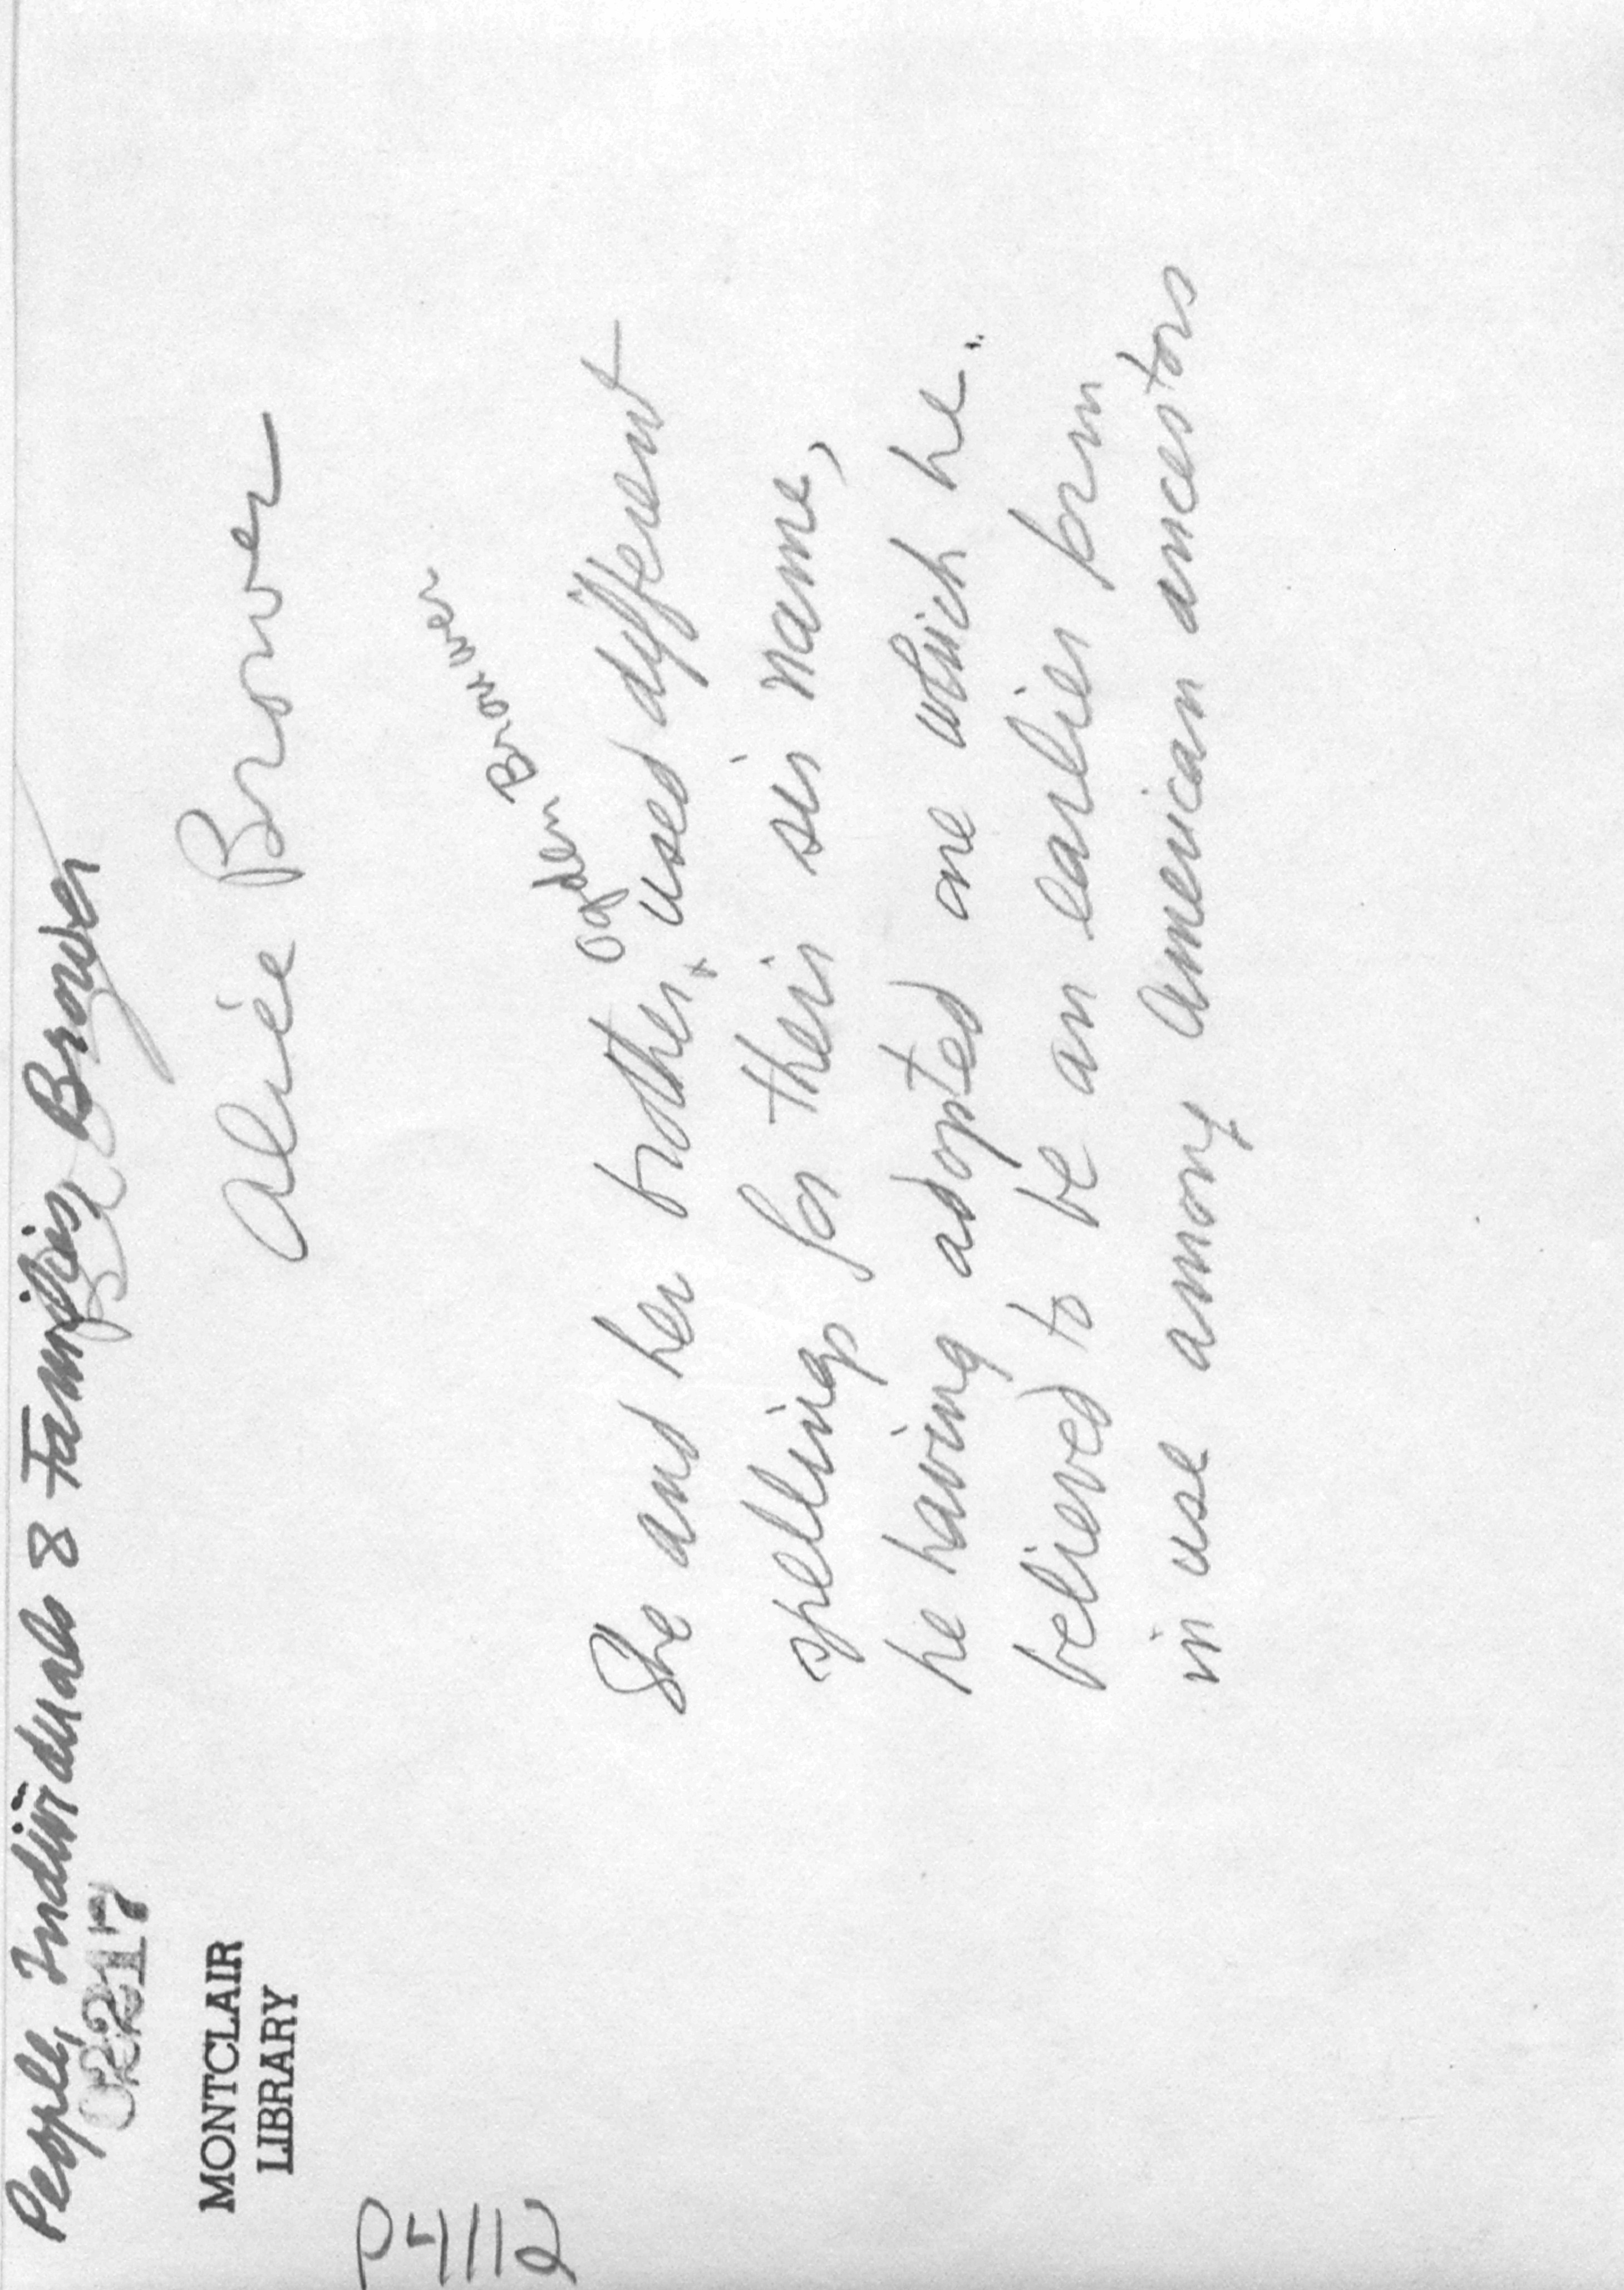 People, Individuals & Families Brower
02217
MONTCLAIR
LIBRARY
P4112
Alice Brower
Ogden Brouwer
She and her brother x used different
spellings for their sir name,
he having adopted one which he
believed to be an earlier form
in use among American ancestors